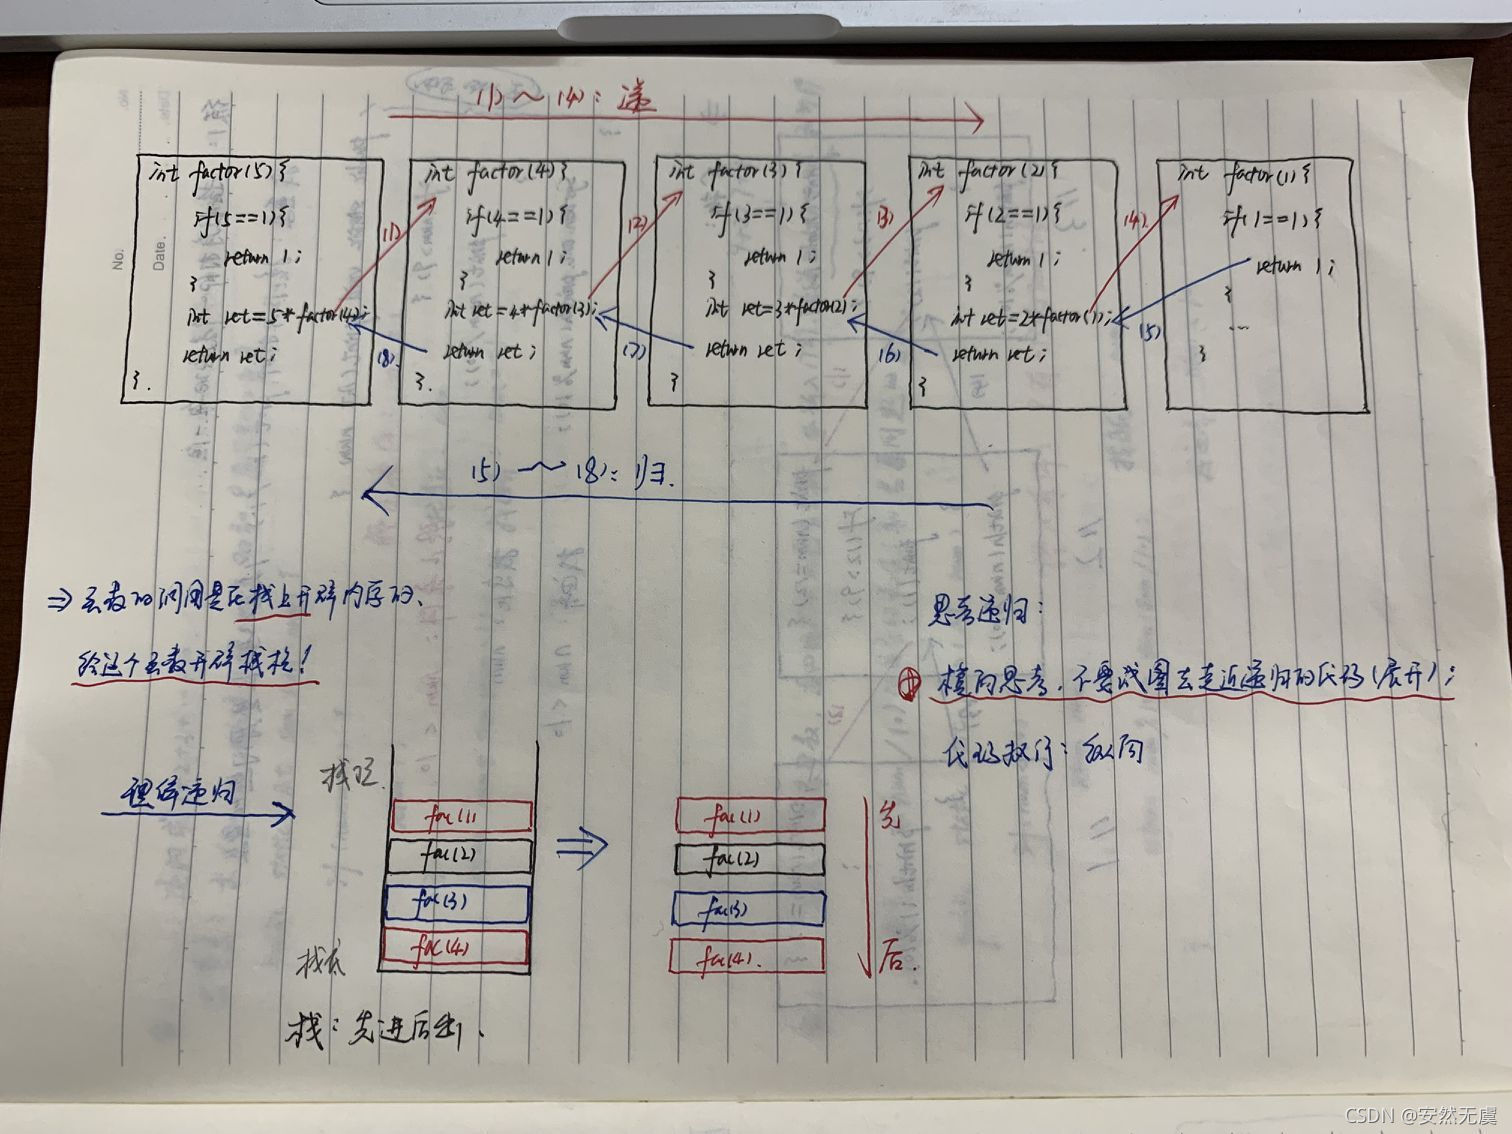 (1)～(4)：递
int factor(5){
if(5==1){
return 1;
}
int ret=5*factor(4);
return ret;
}.
int factor(4){
if(4==1){
return 1;
}
int ret=4*factor(3);
return ret;
}.
int factor(3){
if(3==1){
return 1;
}
int ret=3*factor(2);
return ret;
}
int factor(2){
if(2==1){
return 1;
}
int ret=2*factor(1);
return ret;
}
int factor(1){
if(1==1){
return 1;
}
...
}
(1)
(2)
(3)
(4)
(8)
(7)
(6)
(5)
(5)～(8)：归.
⇒ 函数的调用是在栈上开辟内存的、
给这个函数开辟栈桢!
思考递归：
横向思考，不要试图去走近递归的代码(展开)；
代码执行：纵向
理解递归
栈顶
fac(1)
fac(2)
fac(3)
fac(4)
栈底
⇒
fac(1)
fac(2)
fac(3)
fac(4).
先
后.
栈：先进后出.
No.
Date.
CSDN @安然无虞